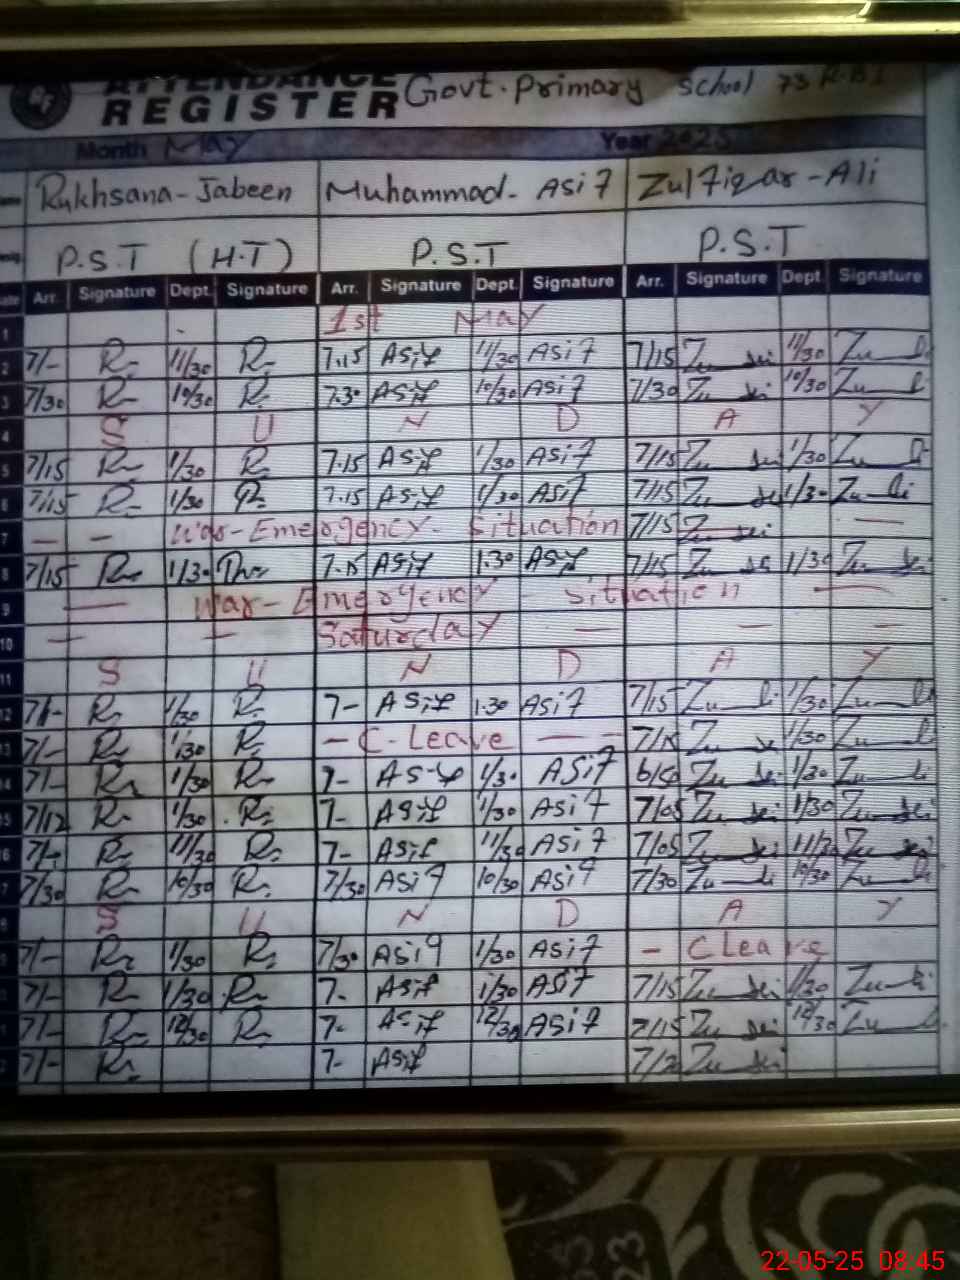 ATTENDANCE
REGISTER Govt. Primary School 73
Month May Year 2025
Rukhsana-Jabeen Muhammad-Asif Zulfiqar-Ali
P.S.T (H.T) P.S.T P.S.T
Arr. Signature Dept. Signature Arr. Signature Dept. Signature Arr. Signature Dept. Signature
1 1st May
2 7/- R 11/30 R 7.15 Asif 11/30 Asif 7/15 11/30
3 7/30 R 10/30 R 7.30 Asif 10/30 Asif 7/30 10/30
4 S U N D A Y
5 7/15 R 1/30 R 7.15 Asif 1/30 Asif 7/15 1/30
6 7/15 R 1/30 R 7.15 Asif 1/30 Asif 7/15 1/30
7 - - War-Emergency Situation 7/15 -
8 7/15 R 1/30 7.15 Asif 1.30 Asif 7/15 1/30
9 - War-Emergency Situation -
10 - - Saturday - - -
11 S U N D A Y
12 7/- R 1/30 R 7- Asif 1.30 Asif 7/15 1/30
13 7/- R 1/30 R - C-Leave - - 7/15 1/30
14 7/- R 1/30 R 7- Asif 1/30 Asif 6/50 1/30
15 7/12 R 1/30 R 7- Asif 1/30 Asif 7/05 1/30
16 7/- R 11/30 R 7- Asif 11/30 Asif 7/05 11/30
17 7/30 R 10/30 R 7/30 Asif 10/30 Asif 7/30 10/30
S U N D A Y
7/- R 1/30 R 7/30 Asif 1/30 Asif - C Leave
7/- R 1/30 R 7- Asif 1/30 Asif 7/15 1/30
7/- R 12/30 R 7- Asif 12/30 Asif 7/15 12/30
7/- R 7- Asif
22-05-25 08:45